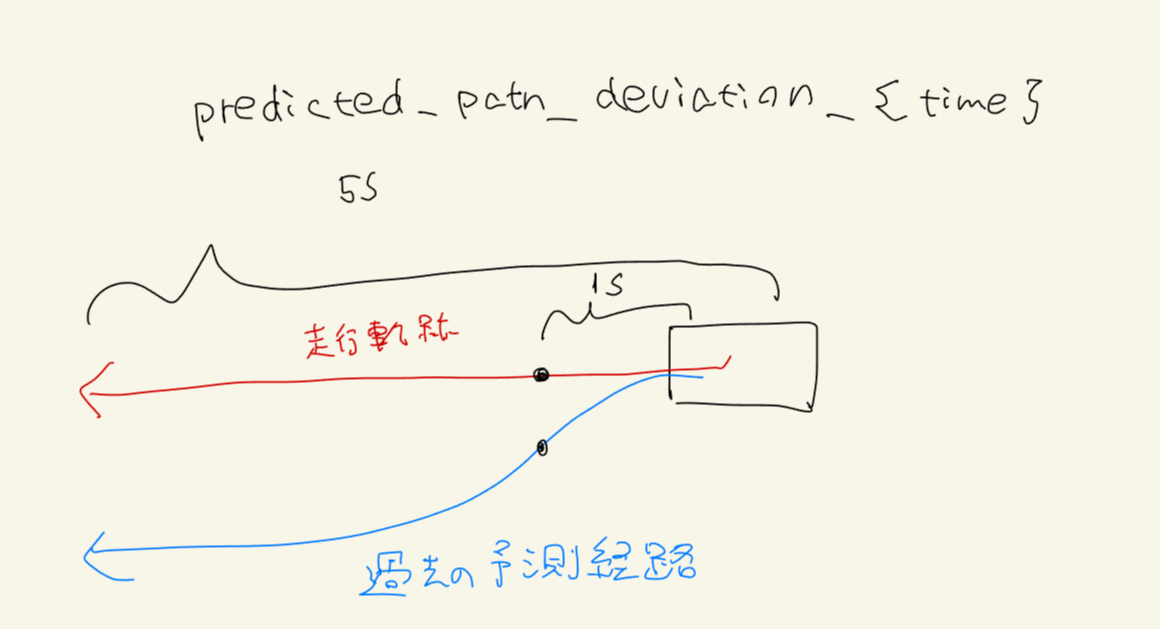 predicted_path_deviation_{time}
5s
1s
走行軌跡
過去の予測経路